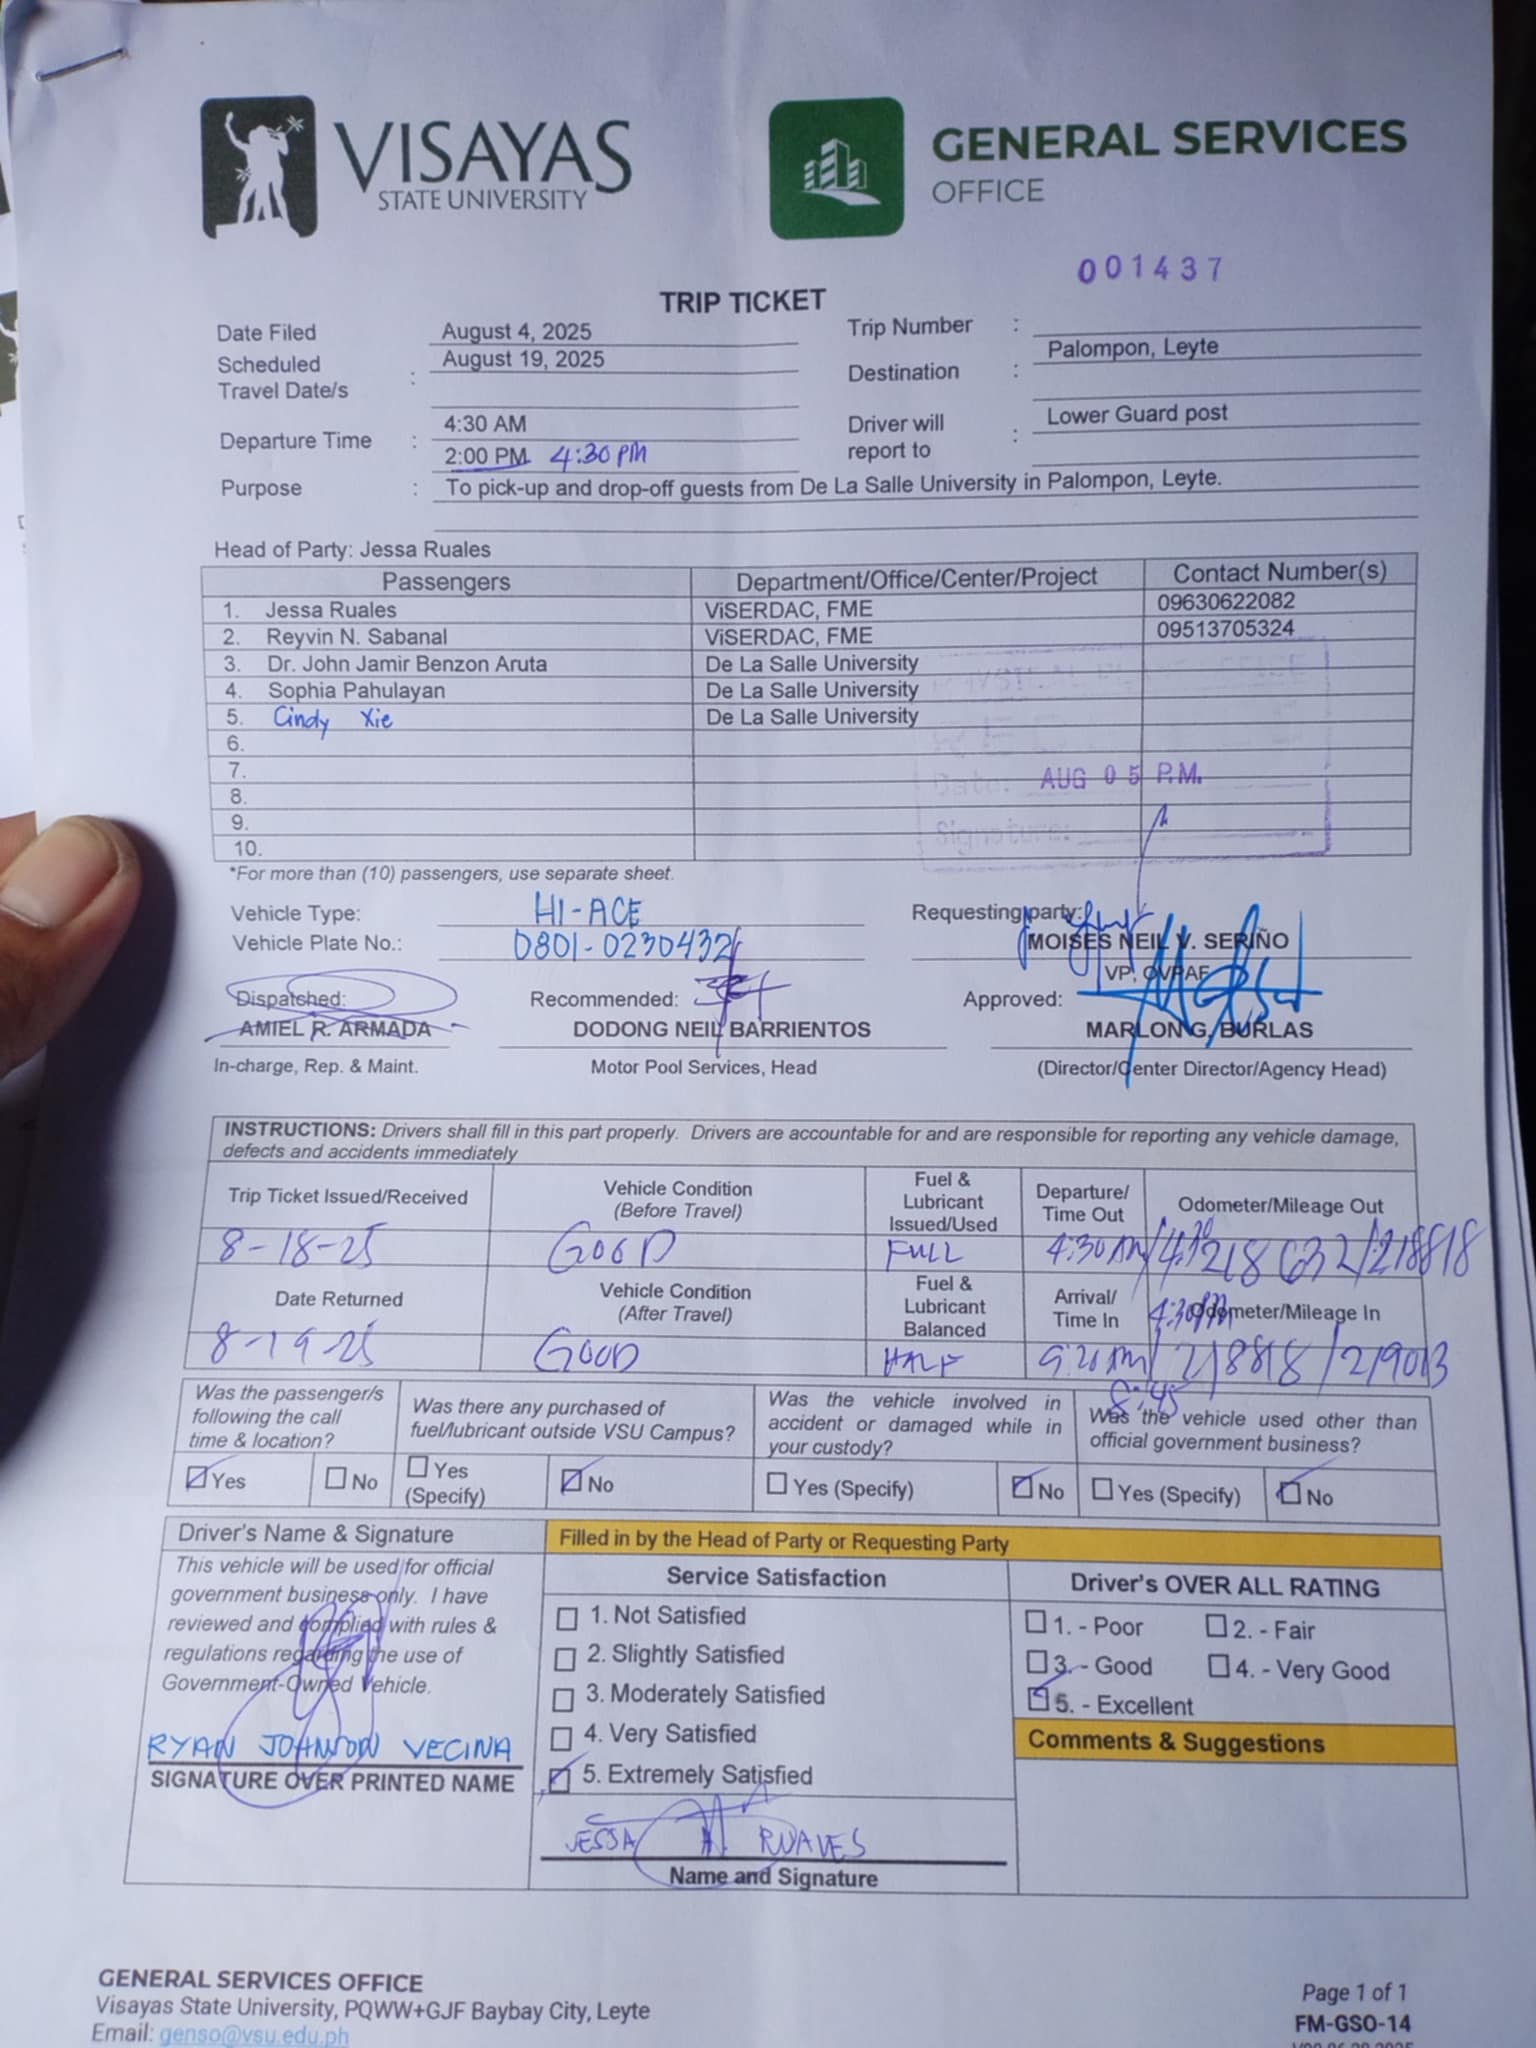 VISAYAS
STATE UNIVERSITY
GENERAL SERVICES
OFFICE
001437
TRIP TICKET
Date Filed August 4, 2025 Trip Number :
Scheduled Travel Date/s : August 19, 2025 Destination : Palompon, Leyte
Departure Time : 4:30 AM Driver will report to : Lower Guard post
2:00 PM 4:30 PM
Purpose : To pick-up and drop-off guests from De La Salle University in Palompon, Leyte.
Head of Party: Jessa Ruales
Passengers Department/Office/Center/Project Contact Number(s)
1. Jessa Ruales ViSERDAC, FME 09630622082
2. Reyvin N. Sabanal ViSERDAC, FME 09513705324
3. Dr. John Jamir Benzon Aruta De La Salle University
4. Sophia Pahulayan De La Salle University
5. Cindy Xie De La Salle University
6.
7.
AUG 05 P.M.
8.
9.
Signature:
10.
*For more than (10) passengers, use separate sheet.
Vehicle Type: HI-ACE Requesting party:
Vehicle Plate No.: 0801-0230432 MOISES NEIL V. SERIÑO
VP, OVPAF
Dispatched: Recommended: Approved:
AMIEL R. ARMADA DODONG NEIL BARRIENTOS MARLON G. BURLAS
In-charge, Rep. & Maint. Motor Pool Services, Head (Director/Center Director/Agency Head)
INSTRUCTIONS: Drivers shall fill in this part properly. Drivers are accountable for and are responsible for reporting any vehicle damage,
defects and accidents immediately
Trip Ticket Issued/Received Vehicle Condition (Before Travel) Fuel & Lubricant Issued/Used Departure/ Time Out Odometer/Mileage Out
8-18-25 GOOD FULL 4:30 AM/ 218632/218818
Date Returned Vehicle Condition (After Travel) Fuel & Lubricant Balanced Arrival/ Time In 4:30PM Odometer/Mileage In
8-19-25 GOOD HALF 9:20 AM/ 218818/219013
8:45
Was the passenger/s following the call time & location? Was there any purchased of fuel/lubricant outside VSU Campus? Was the vehicle involved in accident or damaged while in your custody? Was the vehicle used other than official government business?
Yes No Yes (Specify) No Yes (Specify) No Yes (Specify) No
Driver's Name & Signature Filled in by the Head of Party or Requesting Party
This vehicle will be used for official
government business only. I have
reviewed and complied with rules &
regulations regarding the use of
Government-Owned Vehicle.
RYAN JOHNSON VECINA
SIGNATURE OVER PRINTED NAME
Service Satisfaction
1. Not Satisfied
2. Slightly Satisfied
3. Moderately Satisfied
4. Very Satisfied
5. Extremely Satisfied
JESSA RUALES
Name and Signature
Driver's OVER ALL RATING
1. - Poor 2. - Fair
3. - Good 4. - Very Good
5. - Excellent
Comments & Suggestions
GENERAL SERVICES OFFICE
Visayas State University, PQWW+GJF Baybay City, Leyte
Email: genso@vsu.edu.ph
Page 1 of 1
FM-GSO-14